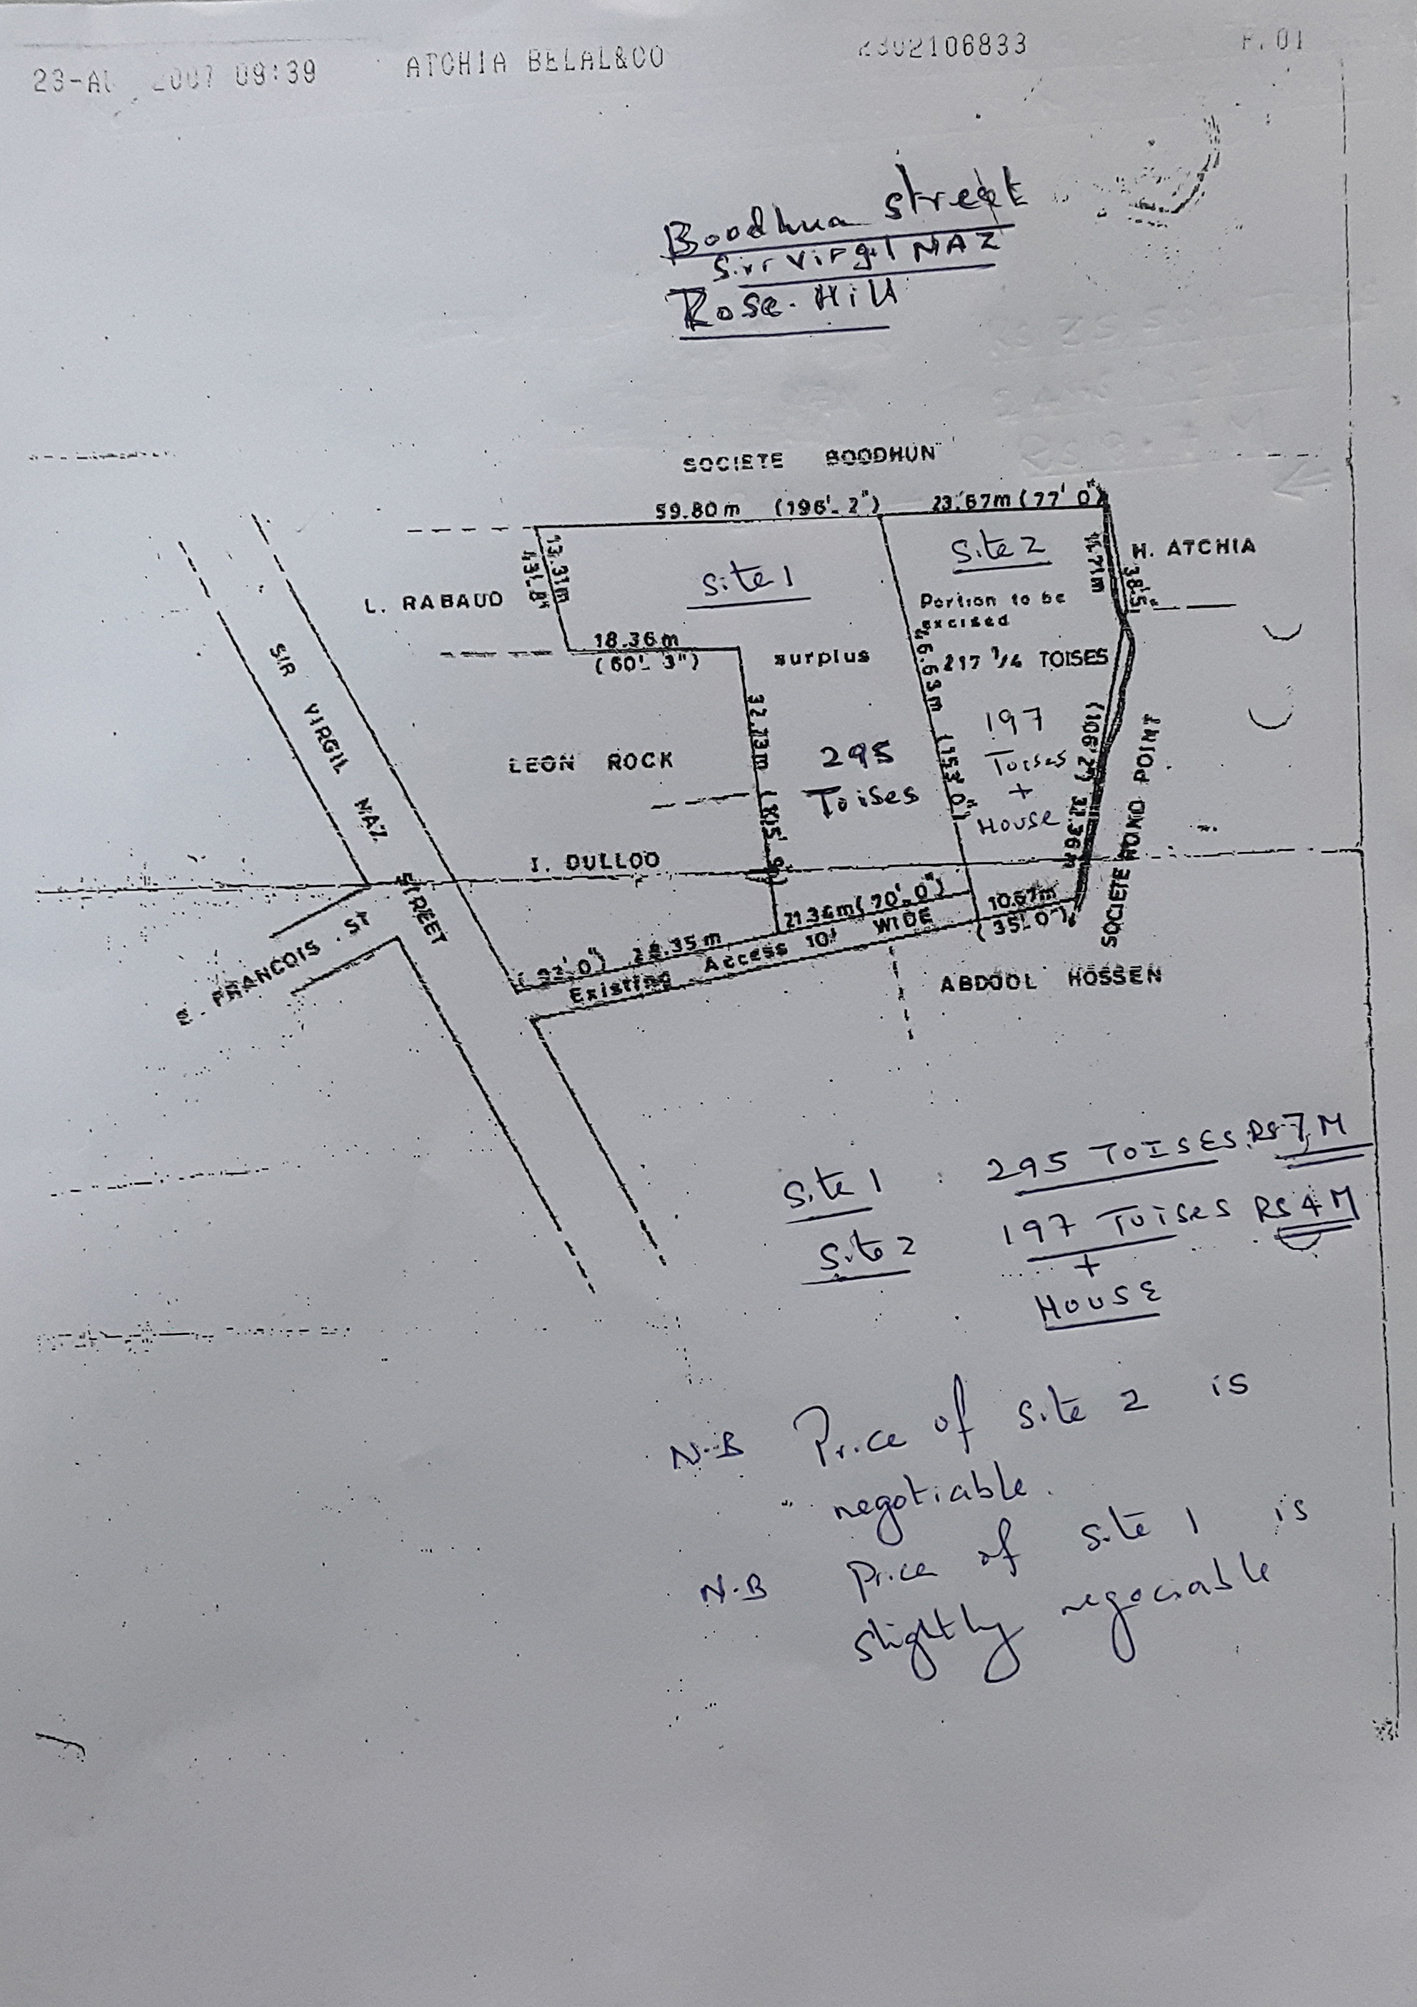 2007 09:39 ATCHIA BELAL&CO 2302106833 P.01
Boodhun street
Sir Virgil NAZ
Rose-Hill
SOCIETE BOODHUN
59.80 m (196'- 2") 23.67m (77' 0")
13.31m
43'- 8"
Site 1
Site 2
11.71m
38'5"
H. ATCHIA
L. RABAUD
Portion to be
excised
18.36m
(60'- 3")
surplus
217 TOISES
46.63m (153' 0")
32.73m
197
Toises
+
House
295
Toises
(106'2") 32.36m
SOCIETE ROND POINT
LEON ROCK
I. DULLOO
SIR VIRGIL NAZ STREET
FRANCOIS . ST
21.34m (70'- 0")
10.67m
(35'- 0")
(92'0")
Existing Access 10' WIDE
ABDOOL HOSSEN
Site 1 : 295 TOISES RS 7 M
Site 2 197 Toises RS 4 M
+
HOUSE
N-B Price of site 2 is
negotiable.
N.B Price of site 1 is
slightly negociable